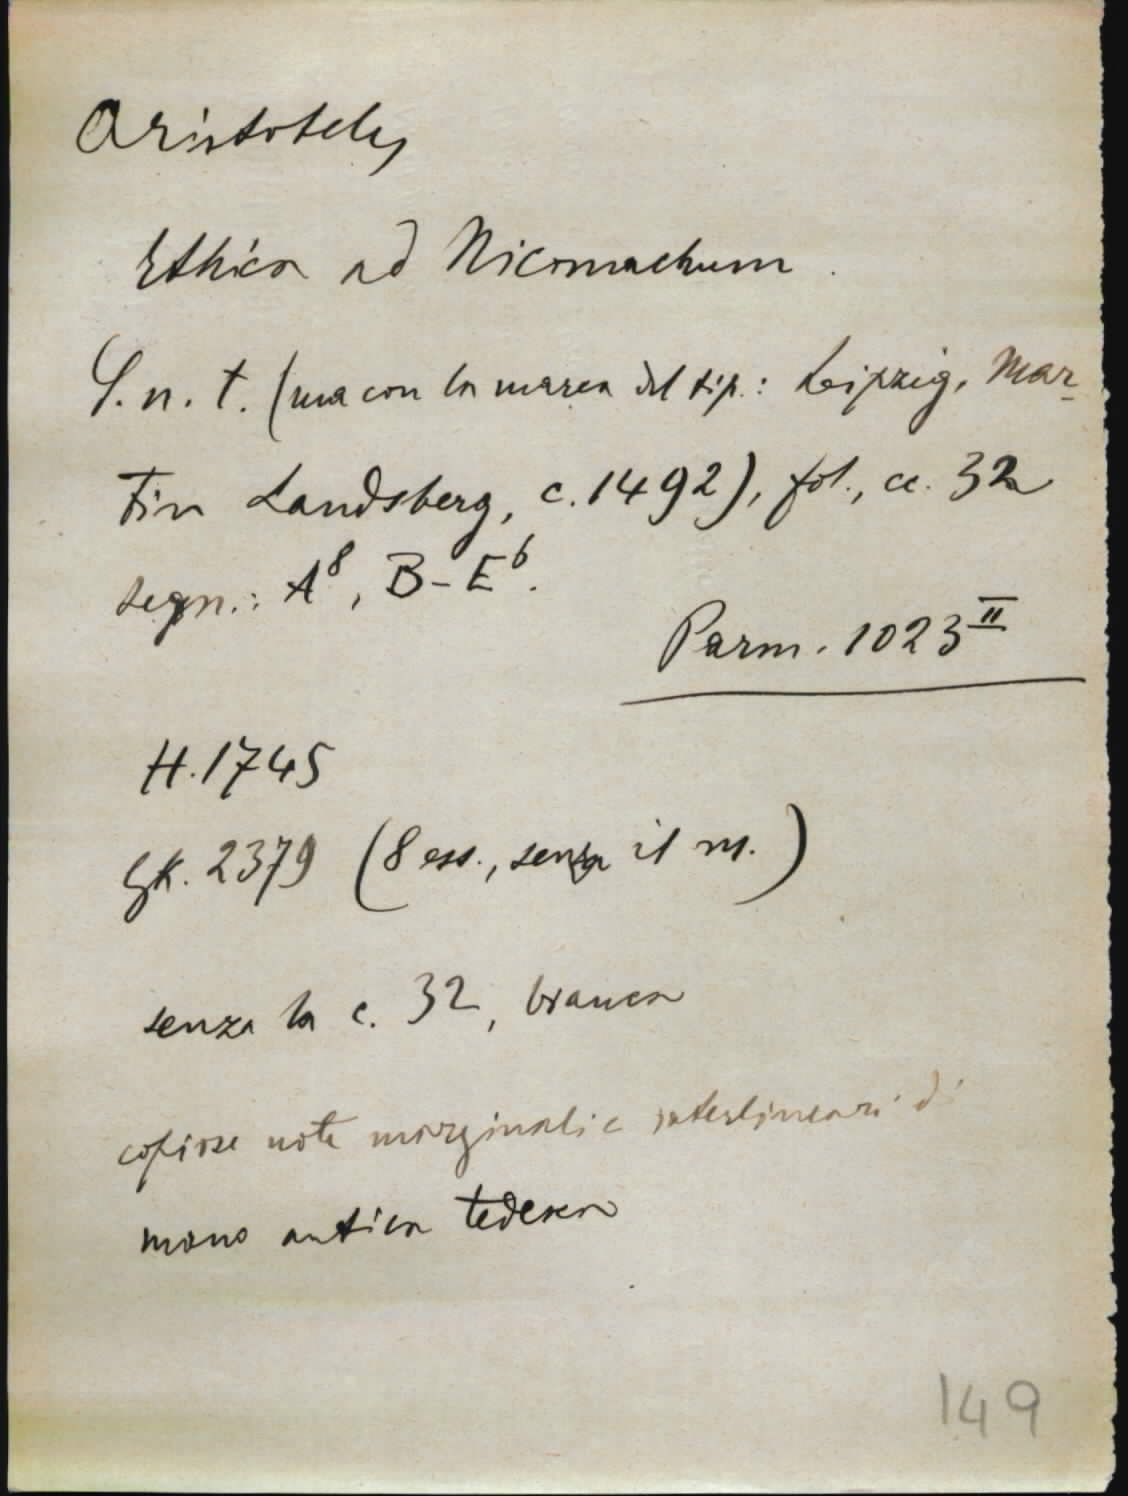 Aristoteles
Ethica ad Nicomachum.
S. n. t. (ma con la marca del tip.: Leipzig, Mar-
tin Landsberg, c. 1492), fol., cc. 32
segn.: A⁸, B-E⁶.
Parm. 1023 II
H. 1745
GK. 2379 (8 ess., senza il ns.)
senza la c. 32, bianca
copiose note marginali e interlineari di
mano antica tedesca
149